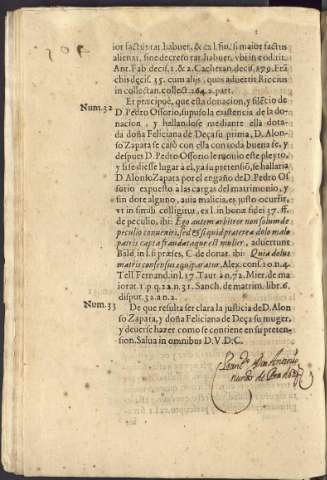 ior factus rat habuer, & ex l. fin. si maior factus
alienat. sine decreto rat. habuer, vbi in eod. tit.
Ant. Fab decis. 1. & 2. Cacheran. decis. 179. Frã
chis decis. 35. cum alijs, quos aduertit Riccius
in collectan. collect. 264. 2. part.
Num. 32
Et præcipuè, que esta donacion, y silẽcio de
D. Pedro Ossorio, supuso la existencia de la do-
nacion, y hallandose mediante ella dota-
da doña Feliciana de Deça su prima, D. Alon
so Zapata se casò con ella con toda buena fe, y
despues D. Pedro Ossorio le monio este pleyto,
y si se diesse lugar a el, y a su pretensiõ, se hallaria
D. Alonso Zapata por el engaño de D. Pedro Os
sorio expuesto a las cargas del matrimonio, y
sin dote alguno, auia malicia, es justo ocurrir,
vt in simili colligitur, ex l. in bona fidei 37. ff.
de peculio, ibi: Ego autem arbitror non solum de
peculio conueniri, sed et si quid præterea dolo malo
patris capta fraudataque est mulier, aduertunt
Bald. in l. si præses, C. de donat. ibi: Quia dolus
matris consensus æquiparatur, Alex. cons. 120. n. 4.
Tell Fernand. in l. 17. Taur. à n. 72. Mier. de ma
iorat. 1. p. q. 2. n. 31. Sanch. de matrim. lib. 6.
disput. 32. à n. 2.
Num. 33
De que resulta ser clara la justicia de D. Alon
so Zapata, y doña Feliciana de Deça su muger,
y deuerse hazer como se contiene en su preten-
sion. Salua in omnibus D. V. D. C.